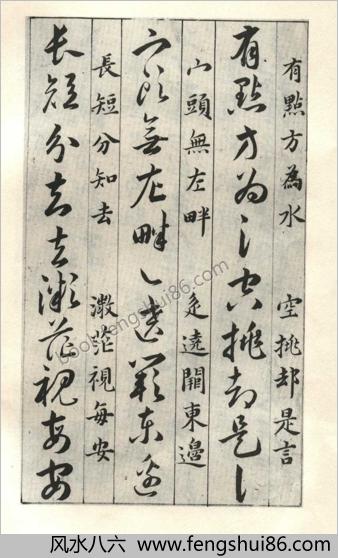 有點方為水 空挑却是言
有點方為氵空挑却是讠
宀頭無左畔 辵遶闕東邊
宀頭無左畔辶遶闕東邊
長短分知去 溦茫視每安
長短分知去溦茫視每安
book.fengshui86.com
风水八六 www.fengshui86.com